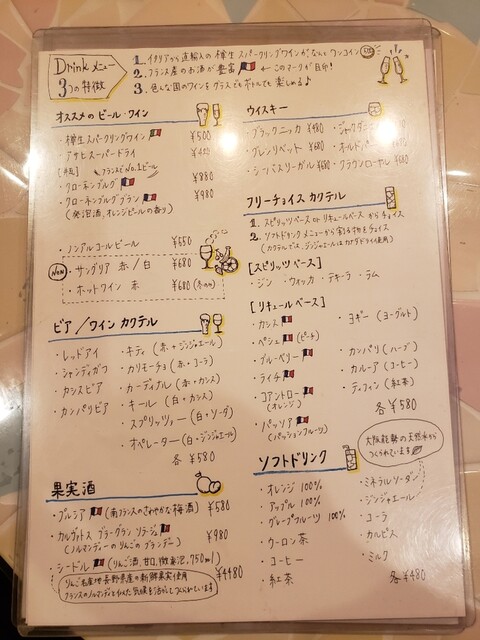 Drink メニュー
3つの特徴
1. イタリアから直輸入の樽生スパークリングワインがなんとワンコイン
2. フランス産のお酒が豊富 ← このマークが目印!
3. 色んな国のワインをグラスでもボトルでも楽しめる♪
オススメのビール・ワイン
・樽生スパークリングワイン ¥500
・アサヒスーパードライ
[瓶] フランスでNo.1ビール
・クローネンブルグ ¥880
・クローネンブルグブラン ¥980
(発泡酒、オレンジピールの香り)
・ノンアルコールビール ¥550
New
・サングリア 赤/白 ¥680
・ホットワイン 赤 ¥680 (冬のみ)
ビア/ワイン カクテル
・レッドアイ
・シャンディガフ
・カシスビア
・カンパリビア
・キティ (赤+ジンジャエール)
・カリモーチョ (赤+コーラ)
・カーディナル (赤+カシス)
・キール (白+カシス)
・スプリッツァー (白+ソーダ)
・オペレーター (白+ジンジャエール)
各 ¥580
果実酒
・プルシア (南フランスのさわやかな梅酒) ¥580
・カルヴァドス ブラーグラン ソラージュ ¥980
(ノルマンディーのりんごのブランデー)
・シードル (りんご酒、甘口、微発泡、750ml) ¥4480
りんご名産地長野県産の新鮮果実使用
フランスのノルマンディと似た気候を活かしてつくられています
ウイスキー
・ブラックニッカ ¥480 ・ジャックダニ
・グレンリベット ¥680 ・オールドパー
・シーバスリーガル ¥680 ・クラウンローヤル ¥680
フリーチョイス カクテル
1. スピリッツベース or リキュールベースからチョイス
2. ソフトドリンクメニューから割る物をチョイス
(カクテルでは、ジンジャエールはカナダドライ使用)
[スピリッツベース]
・ジン ・ウォッカ ・テキーラ ・ラム
[リキュールベース]
・カシス
・ペシェ (ピーチ)
・ブルーベリー
・ライチ
・コアントロー
(オレンジ)
・パッソア
(パッションフルーツ)
・ヨギー (ヨーグルト)
・カンパリ (ハーブ)
・カルーア (コーヒー)
・ティフィン (紅茶)
各 ¥580
ソフトドリンク
大阪能勢の天然水から
つくられています
・オレンジ 100%
・アップル 100%
・グレープフルーツ 100%
・ウーロン茶
・コーヒー
・紅茶
・ミネラルソーダ
・ジンジャエール
・コーラ
・カルピス
・ミルク
各 ¥480